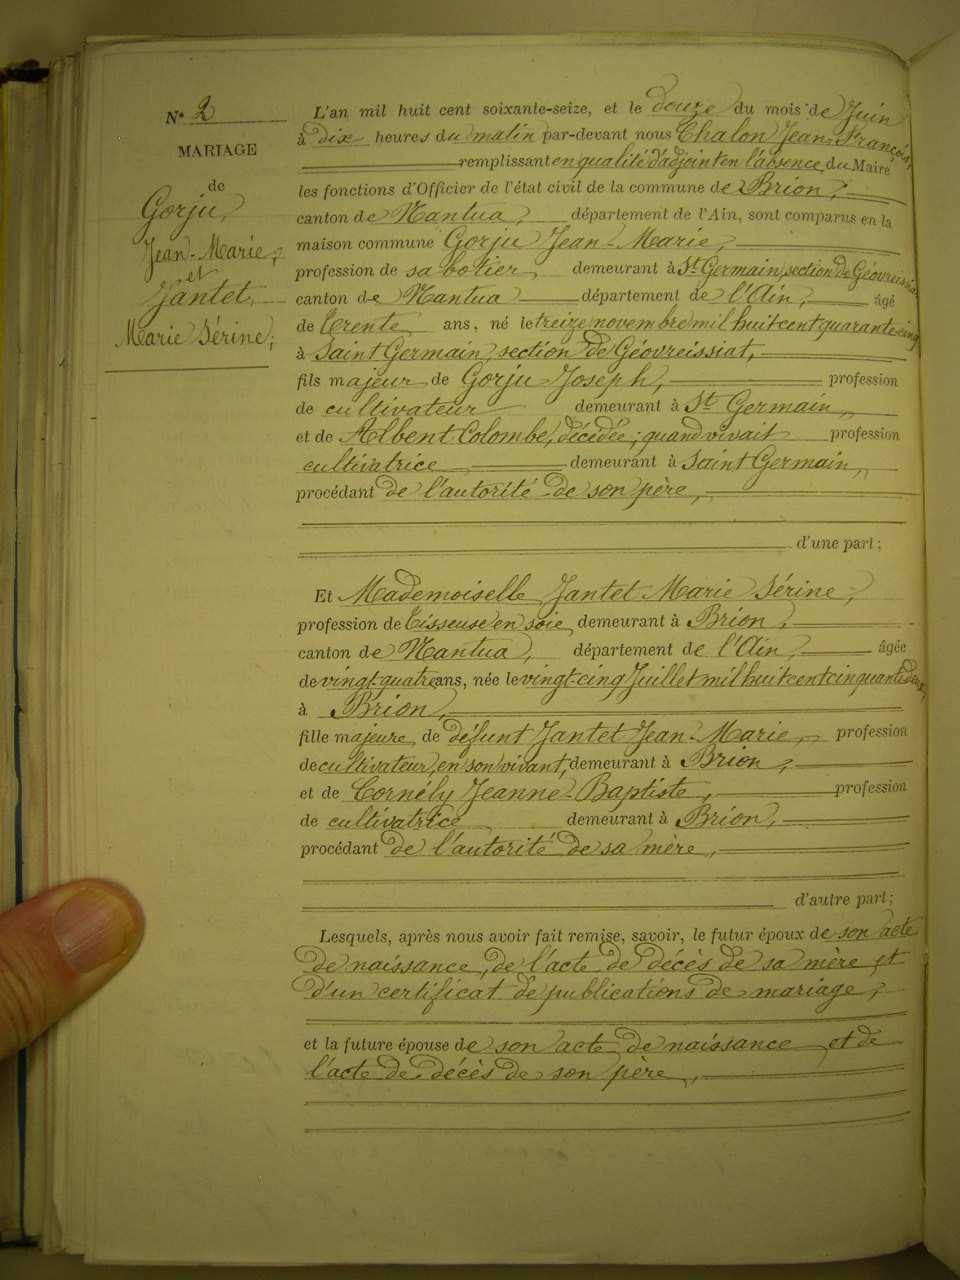 N° 2
MARIAGE
de
Gorju,
Jean-Marie,
et
Jantet,
Marie Sérine;
L'an mil huit cent soixante-seize, et le douze du mois de Juin
à dix heures du matin par-devant nous Chalon Jean-François,
remplissant en qualité d'adjoint en l'absence du Maire
les fonctions d'Officier de l'état civil de la commune de Brion,
canton de Nantua, département de l'Ain, sont comparus en la
maison commune Gorju Jean-Marie,
profession de sabotier, demeurant à St Germain, section de Géovreissiat
canton de Nantua département de l'Ain, âgé
de trente ans, né le treize novembre mil huit cent quarante-cinq
à Saint Germain, section de Géovreissiat,
fils majeur de Gorju Joseph, profession
de cultivateur demeurant à St Germain,
et de Albent Colombe, décédée; quand vivait profession
cultivatrice demeurant à Saint Germain,
procédant de l'autorité de son père,
d'une part;
Et Mademoiselle Jantet Marie Sérine,
profession de tisseuse en soie, demeurant à Brion,
canton de Nantua, département de l'Ain, âgée
de vingt-quatre ans, née le vingt-cinq Juillet mil huit cent cinquante-deux,
à Brion,
fille majeure de défunt Jantet Jean-Marie, profession
de cultivateur, en son vivant, demeurant à Brion,
et de Cornély Jeanne-Baptiste, profession
de cultivatrice demeurant à Brion,
procédant de l'autorité de sa mère,
d'autre part;
Lesquels, après nous avoir fait remise, savoir, le futur époux de son acte
de naissance, de l'acte de décès de sa mère et
d'un certificat de publications de mariage,
et la future épouse de son acte de naissance et de
l'acte de décès de son père,